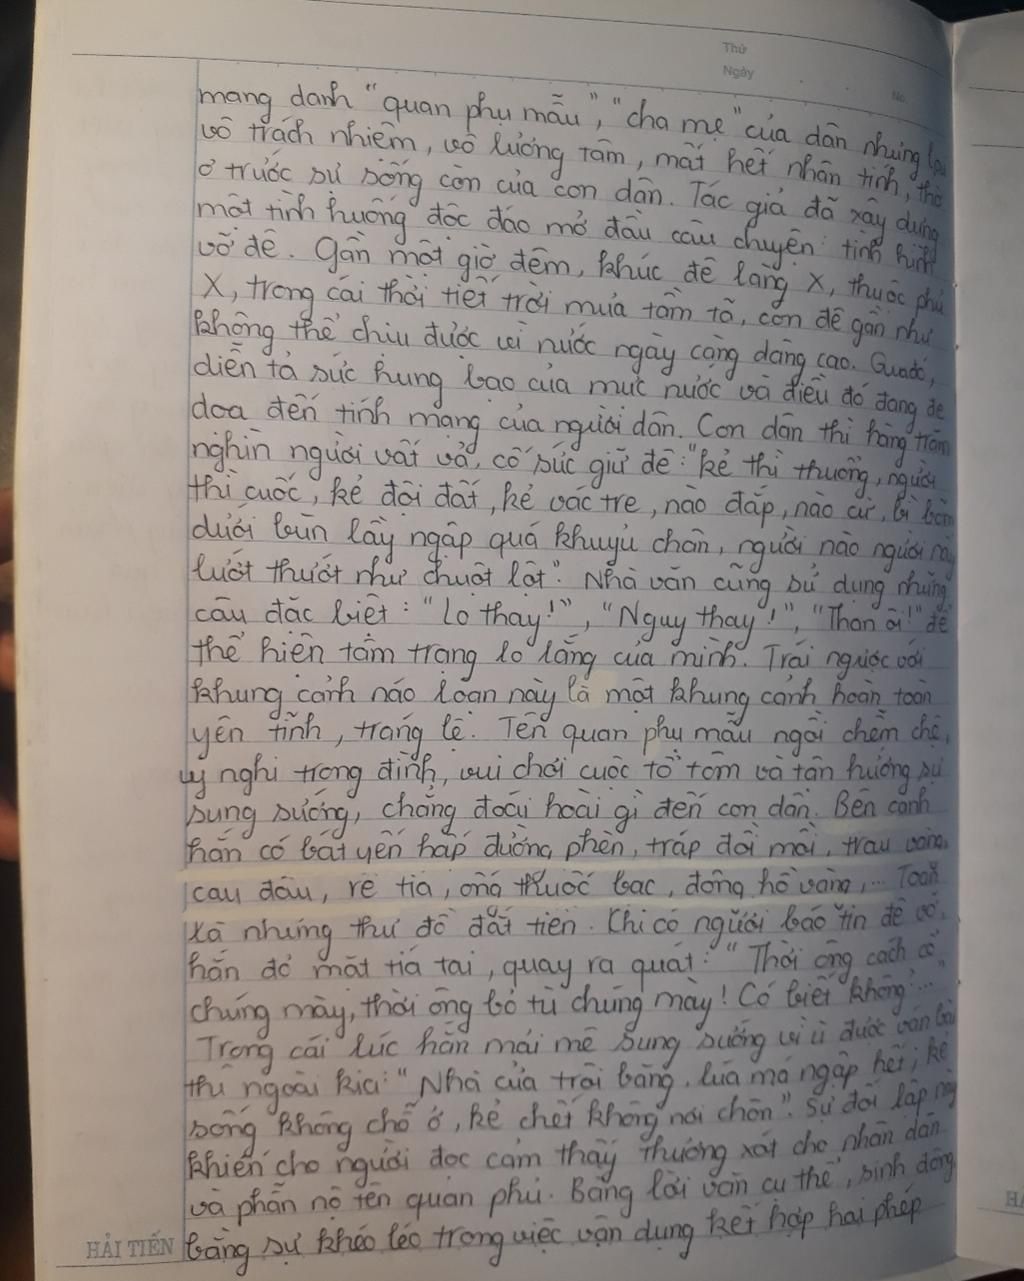 Thứ
Ngày
No.
mang danh "quan phụ mẫu", "cha mẹ" của dân nhưng lại
vô trách nhiệm, vô lương tâm, mất hết nhân tính, thờ
ơ trước sự sống còn của con dân. Tác giả đã xây dựng
một tình huống độc đáo mở đầu câu chuyện: tình hình
vỡ đê. Gần một giờ đêm, khúc đê làng X, thuộc phủ
X, trong cái thời tiết trời mưa tầm tã, con đê gần như
không thể chịu được vì nước ngày càng dâng cao. Qua đó,
diễn tả sức hung bạo của mực nước và điều đó đang đe
doạ đến tính mạng của người dân. Con dân thì hàng trăm
nghìn người vất vả, cố sức giữ đê: "kẻ thì thuổng, người
thì cuốc, kẻ đội đất, kẻ vác tre, nào đắp, nào cừ, bì bõm
dưới bùn lầy ngập quá khuỷu chân, người nào người nấy
lướt thướt như chuột lột". Nhà văn cũng sử dụng những
câu đặc biệt: "Lo thay!", "Nguy thay!", "Than ôi!" để
thể hiện tâm trạng lo lắng của mình. Trái ngược với
khung cảnh náo loạn này là một khung cảnh hoàn toàn
yên tĩnh, tráng lệ. Tên quan phụ mẫu ngồi chễm chệ,
uy nghi trong đình, vui chơi cuộc tổ tôm và tận hưởng sự
sung sướng, chẳng đoái hoài gì đến con dân. Bên cạnh
hắn có bát yến hấp đường phèn, tráp đồi mồi, trau vàng,
cau đậu, rễ tía, ống thuốc bạc, đồng hồ vàng,... Toàn
là những thứ đồ đắt tiền. Khi có người báo tin đê vỡ,
hắn đỏ mặt tía tai, quay ra quát: "Thời ông cách cổ
chúng mày, thời ông bỏ tù chúng mày! Có biết không?...
Trong cái lúc hắn mải mê sung sướng vì ù được ván bài
thì ngoài kia: "Nhà cửa trôi băng, lúa má ngập hết; kẻ
sống không chỗ ở, kẻ chết không nơi chôn". Sự đối lập này
khiến cho người đọc cảm thấy thương xót cho nhân dân
và phẫn nộ tên quan phủ. Bằng lời văn cụ thể, sinh động,
bằng sự khéo léo trong việc vận dụng kết hợp hai phép
HẢI TIẾN